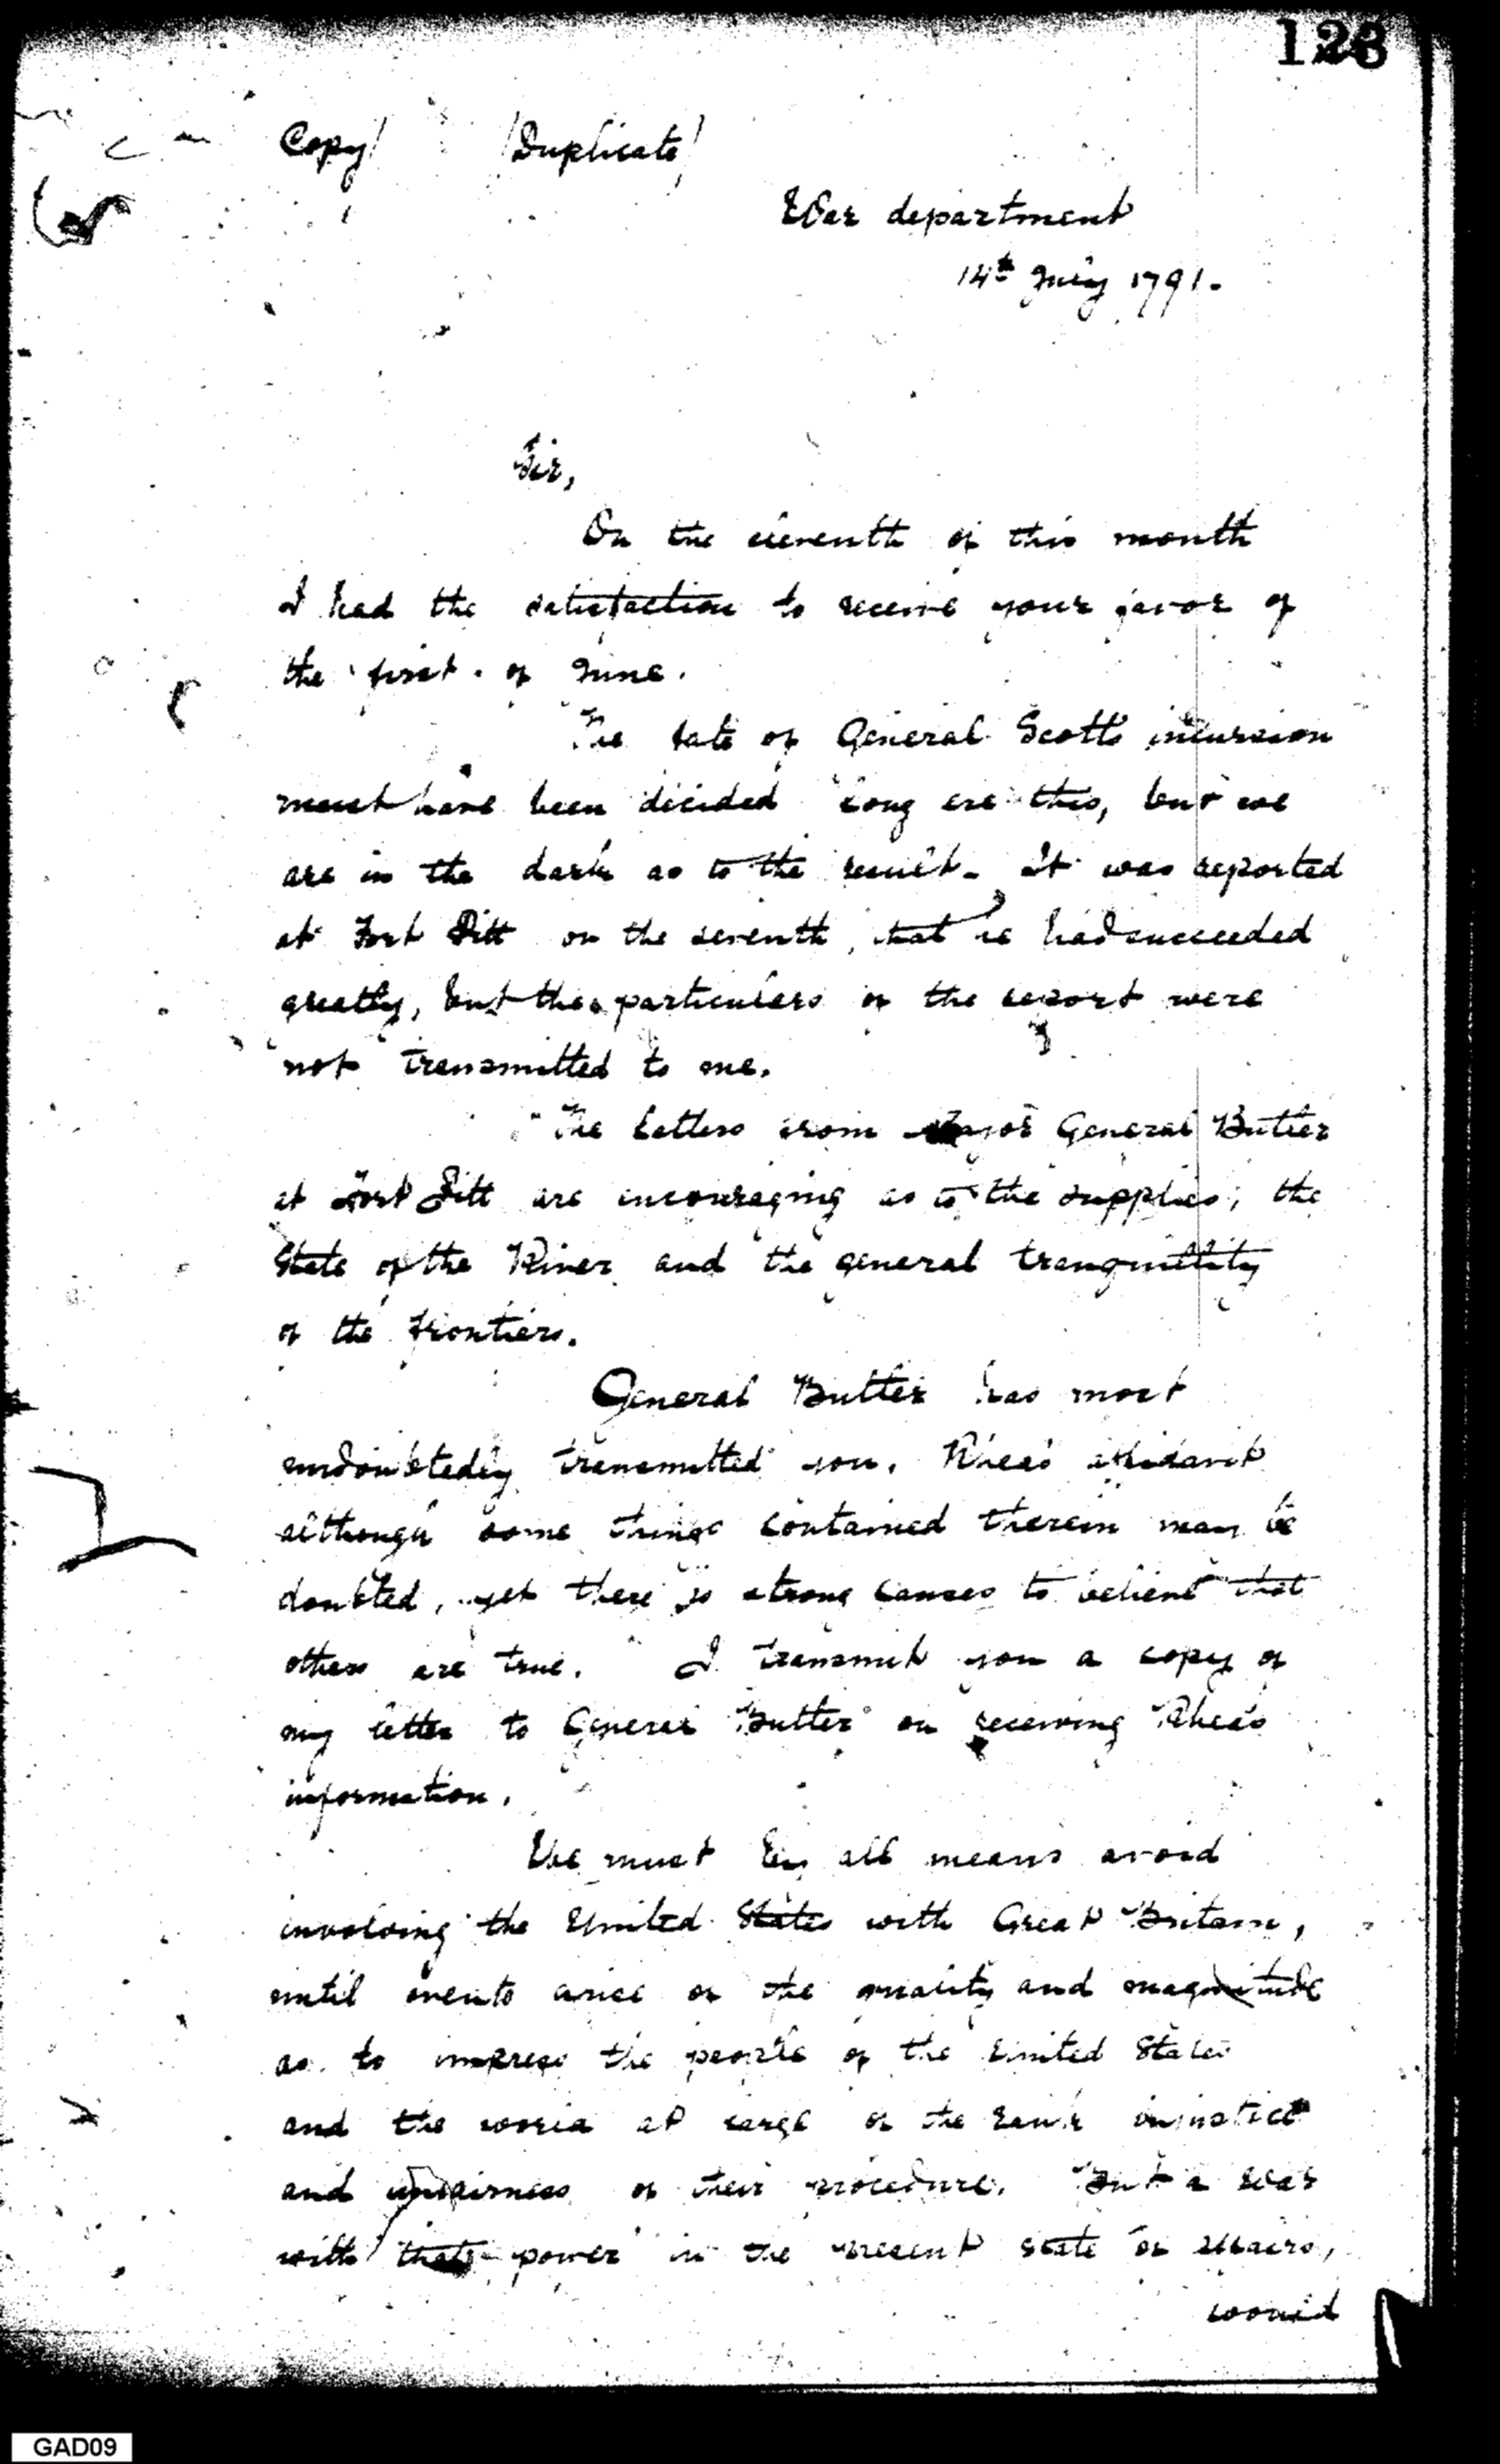 128
Copy/ /Duplicate/
War department
14th July 1791.
Sir,
On the eleventh of this month
I had the satisfaction to receive your favor of
the first of June.
The fate of General Scott's incursion
must have been decided long ere this, but we
are in the dark as to the result. It was reported
at Fort Pitt on the seventh, that he had succeeded
greatly, but the particulars of the report were
not transmitted to me.
The Letters from Major General Butler
at Fort Pitt are encouraging as to the supplies, the
State of the River and the general tranquillity
of the frontiers.
General Butler has most
undoubtedly transmitted you, Rhea's affidavit
although some things contained therein may be
doubted, yet there is strong causes to believe that
others are true. I transmit you a copy of
my letter to General Butler on receiving Rhea's
information.
We must by all means avoid
involving the United States with Great Britain,
until events arise of the quality and magnitude
as to impress the people of the United States
and the world at large of the rank injustice
and unfairness of their procedure. But a War
with that power in the present state of affairs,
would
GAD09